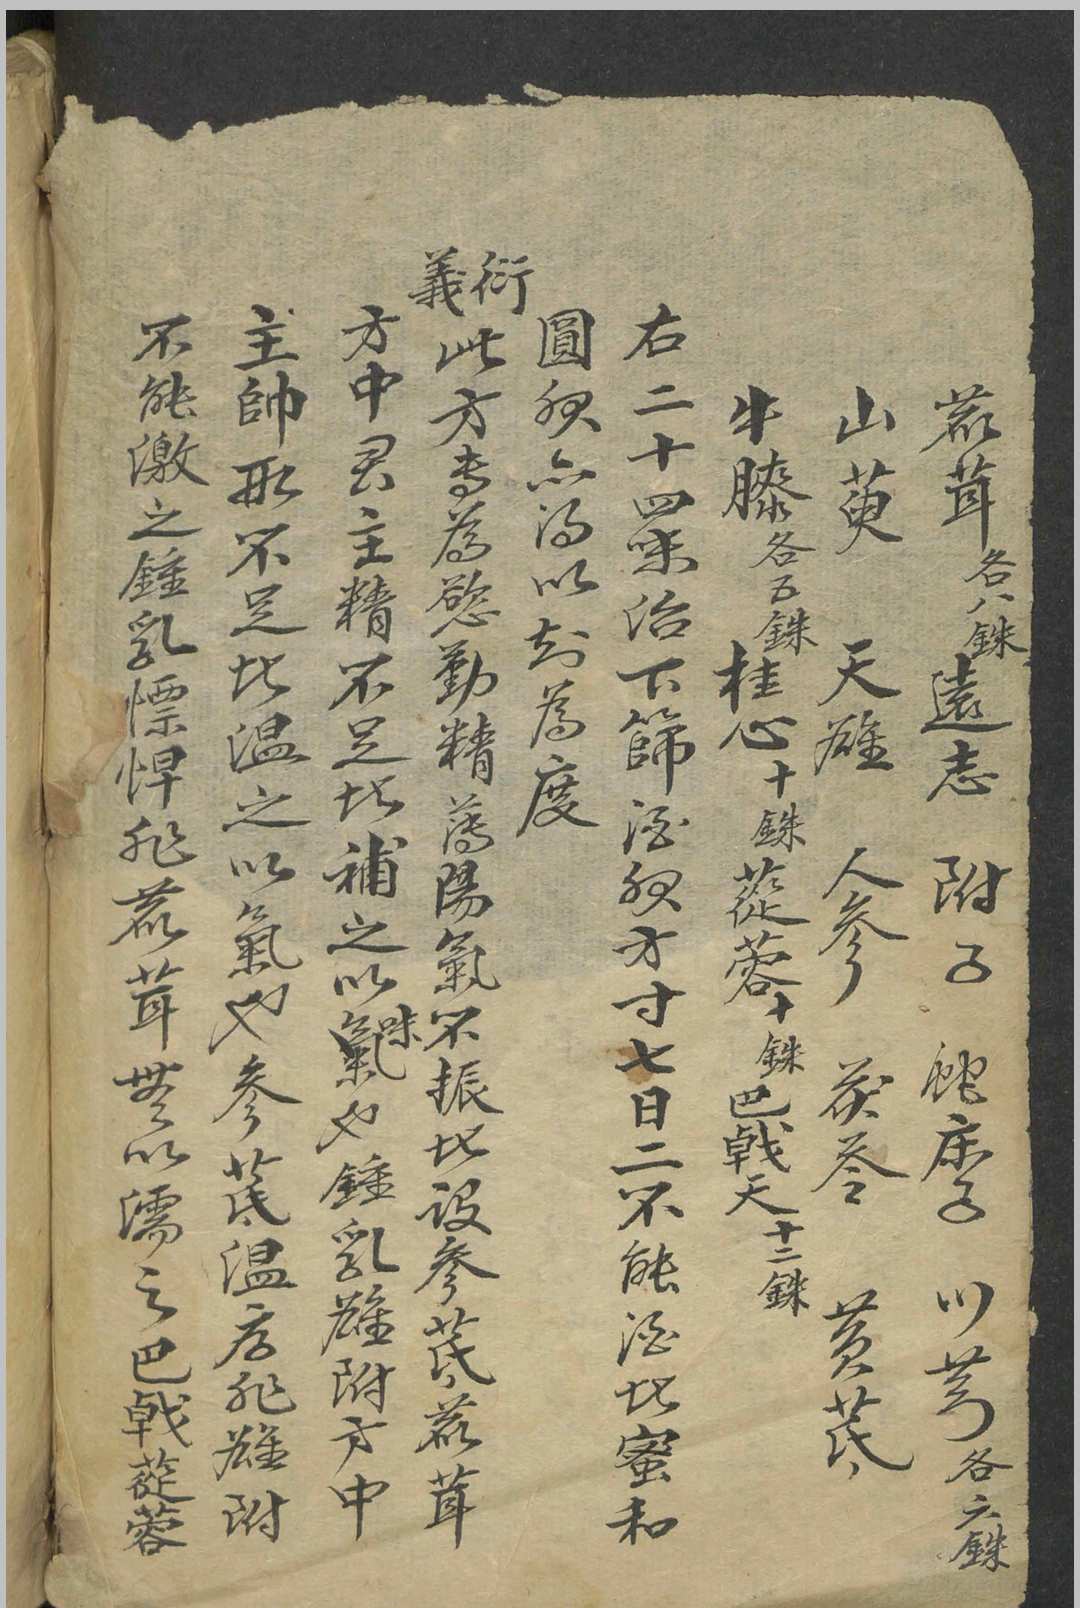 鹿茸各八銖遠志附子蛇床子川芎各六銖
山萸天雄人參茯苓黃芪
牛膝各五銖桂心十銖蓯蓉十銖巴戟天十二銖
右二十四味治下篩酒服方寸匕日二不能酒者蜜和
圓服亦得以知為度
衍義此方專為慾勤精薄陽氣不振者設參芪鹿茸
方中君主精不足者補之以氣味也鍾乳雄附方中
主帥形不足者溫之以氣也參芪溫厚非雄附
不能激之鍾乳慓悍非鹿茸無以濡之巴戟蓯蓉